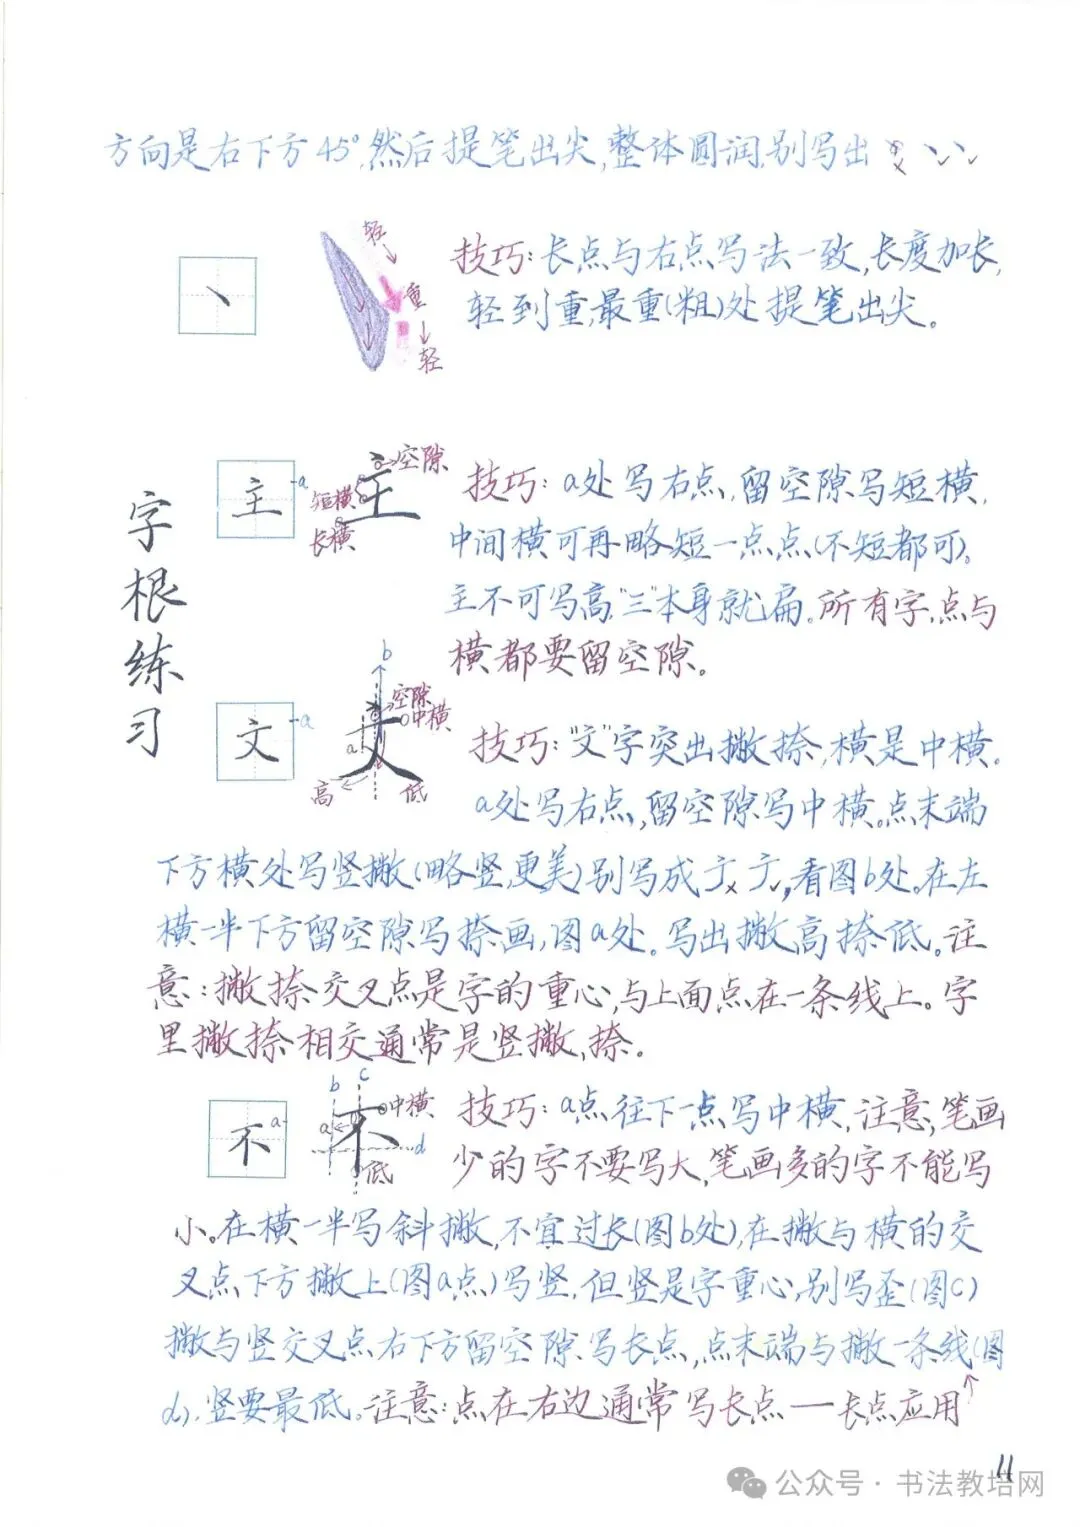 方向是右下方45°,然后提笔出尖,整体圆润,别写出
轻
重
轻
技巧:长点与右点写法一致,长度加长,
轻到重,最重(粗)处提笔出尖。
字根练习
主
a
主
空隙
短横
长横
技巧:a处写右点,留空隙写短横,
中间横可再略短一点点(不短都可)。
主不可写高,"三"本身就扁。所有字,点与
横都要留空隙。
文
a
b
空隙
中横
a
高
低
技巧:"文"字突出撇捺,横是中横。
a处写右点,留空隙写中横。点末端
下方横处写竖撇(略竖,更美)别写成亍ㄨ亍✓,看图b处。在左
横一半下方留空隙写捺画,图a处。写出撇高捺低。注
意:撇捺交叉点是字的重心,与上面点在一条线上。字
里撇捺相交通常是竖撇,捺。
不
a
b
c
中横
a
d
低
技巧:a点往下一点写中横,注意,笔画
少的字不要写大,笔画多的字不能写
小。在横一半写斜撇,不宜过长(图b处),在撇与横的交
叉点下方撇上(图a点)写竖,但竖是字重心,别写歪(图c)
撇与竖交叉点右下方留空隙写长点,点末端与撇一条线(图
d),竖要最低。注意:点在右边通常写长点一长点应用
11
公众号·书法教培网